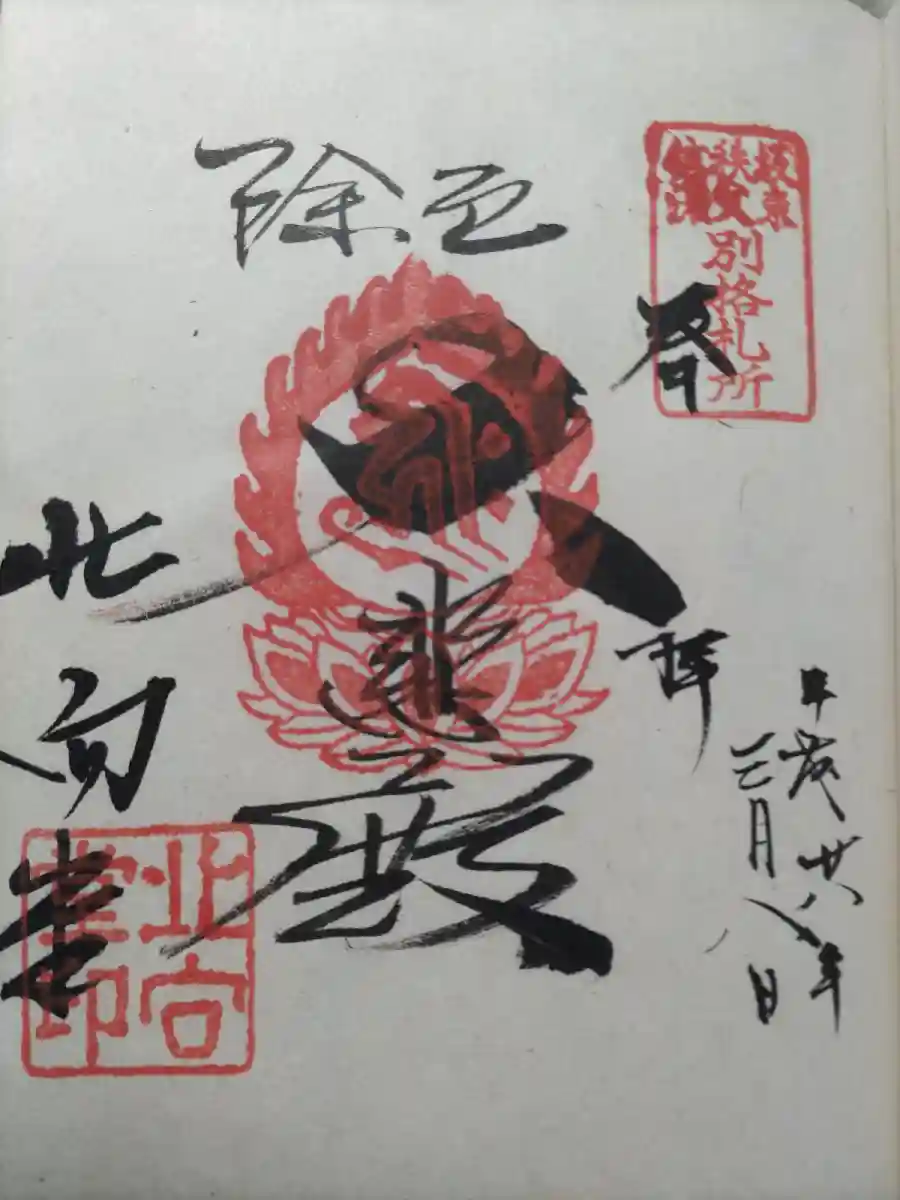 坂東
秩父
信濃
別格札所
奉拝
平成廿八年
三月八日
厄除
大悲殿
北向堂
北向堂印